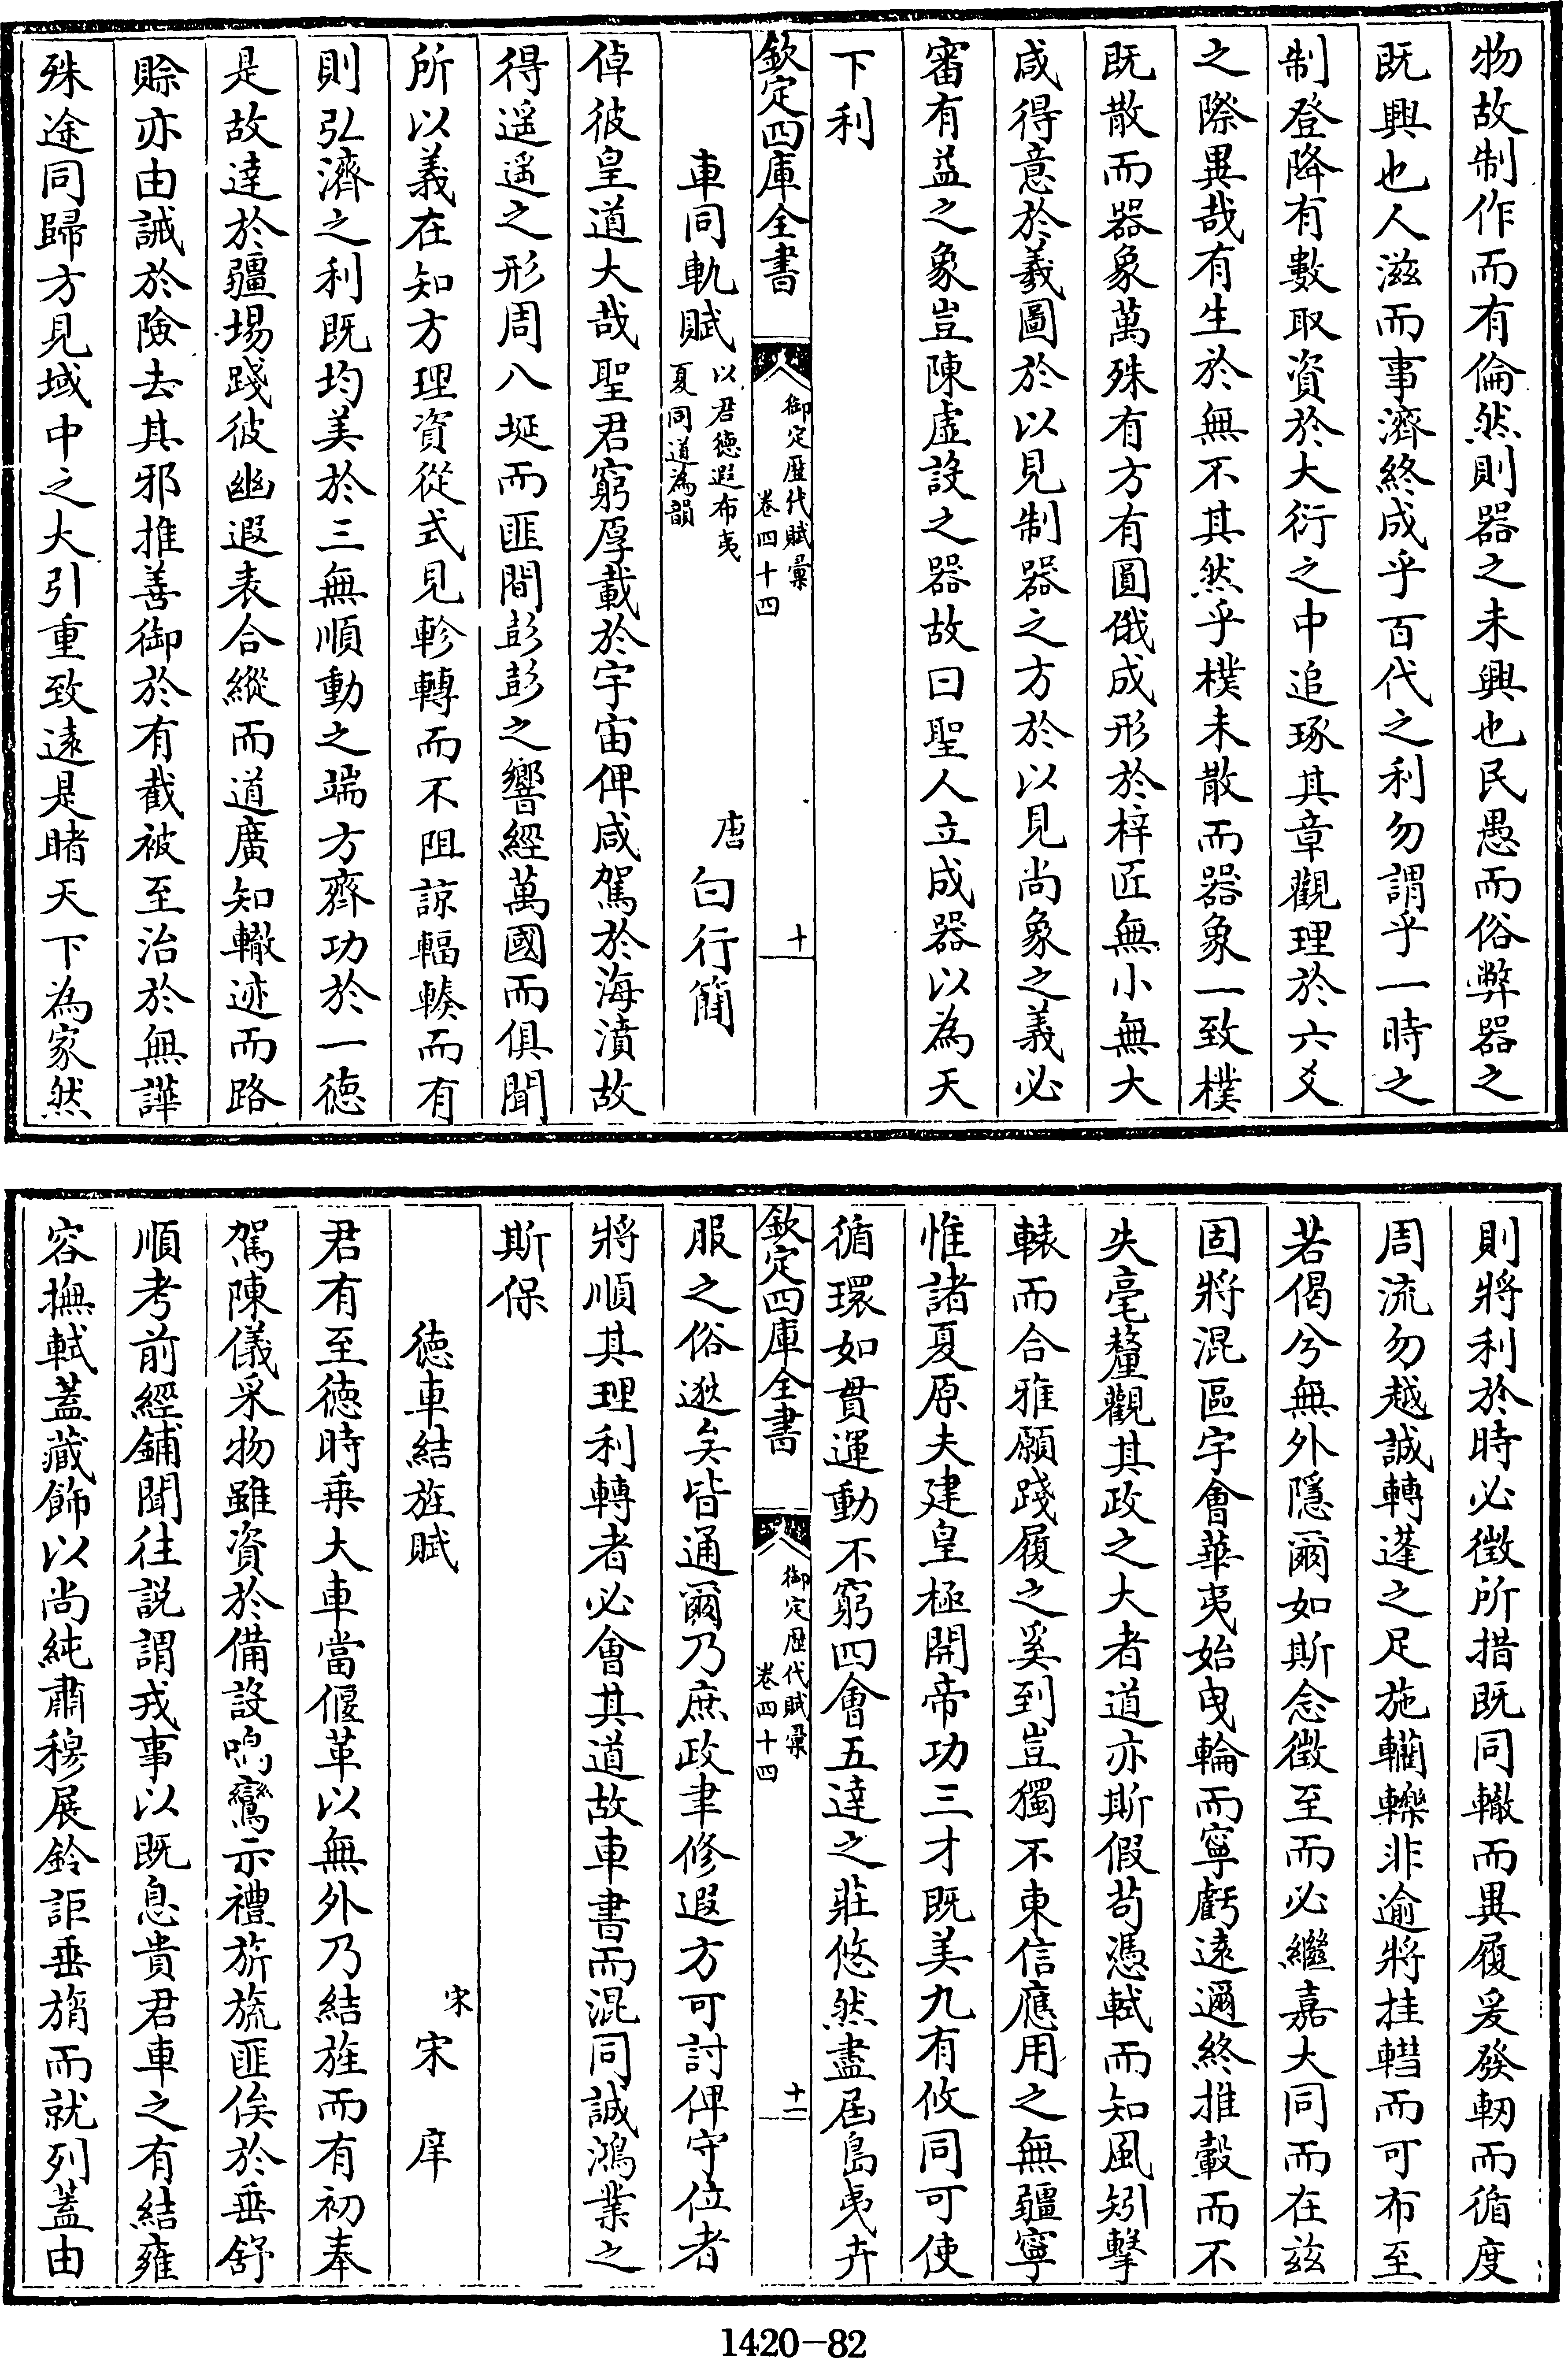 物故制作而有倫然則器之未興也民愚而俗弊器之
既興也人滋而事濟終成乎百代之利勿謂乎一時之
制登降有數取資於大衍之中追琢其章觀理於六爻
之際異哉有生於無不其然乎樸未散而器象一致樸
既散而器象萬殊有方有圓俄成形於梓匠無小無大
咸得意於羲圖於以見制器之方於以見尚象之義必
審有益之象豈陳虛設之器故曰聖人立成器以為天
下利
欽定四庫全書
御定歷代賦彙
卷四十四
十
車同軌賦
以君德遐布夷
夏同道為韻
唐 白行簡
倬彼皇道大哉聖君窮厚載於宇宙俾咸駕於海濆故
得遥遥之形周八埏而匪間彭彭之響經萬國而俱聞
所以義在知方理資從式見軫轉而不阻諒輻輳而有
則弘濟之利既均美於三無順動之端方齊功於一德
是故達於疆埸踐彼幽遐表合縱而道廣知轍迹而路
賒亦由誡於險去其邪推善御於有截被至治於無譁
殊途同歸方見域中之大引重致遠是睹天下為家然
則將利於時必徵所措既同轍而異履爰發軔而循度
周流勿越誠轉蓬之足施轥轢非逾將挂轊而可布至
若偈兮無外隱爾如斯念徵至而必繼嘉大同而在茲
固將混區宇會華夷始曳輪而寧虧遠邇終推轂而不
失毫釐觀其政之大者道亦斯假苟憑軾而知風矧擊
轅而合雅願踐履之奚到豈獨不東信應用之無疆寧
惟諸夏原夫建皇極開帝功三才既美九有攸同可使
循環如貫運動不窮四會五達之莊悠然盡屆島夷卉
欽定四庫全書
御定歷代賦彙
卷四十四
十一
服之俗逖矣皆通爾乃庶政聿修遐方可討俾守位者
將順其理利轉者必會其道故車書而混同誠鴻業之
斯保
德車結旌賦
宋 宋 庠
君有至德時乗大車當偃革以無外乃結旌而有初奉
駕陳儀采物雖資於備設鳴鸞示禮旂旒匪俟於垂舒
順考前經鋪聞往說謂戎事以既息貴君車之有結雍
容撫軾蓋藏飾以尚純肅穆展鈴詎垂旓而就列蓋由
1420-82